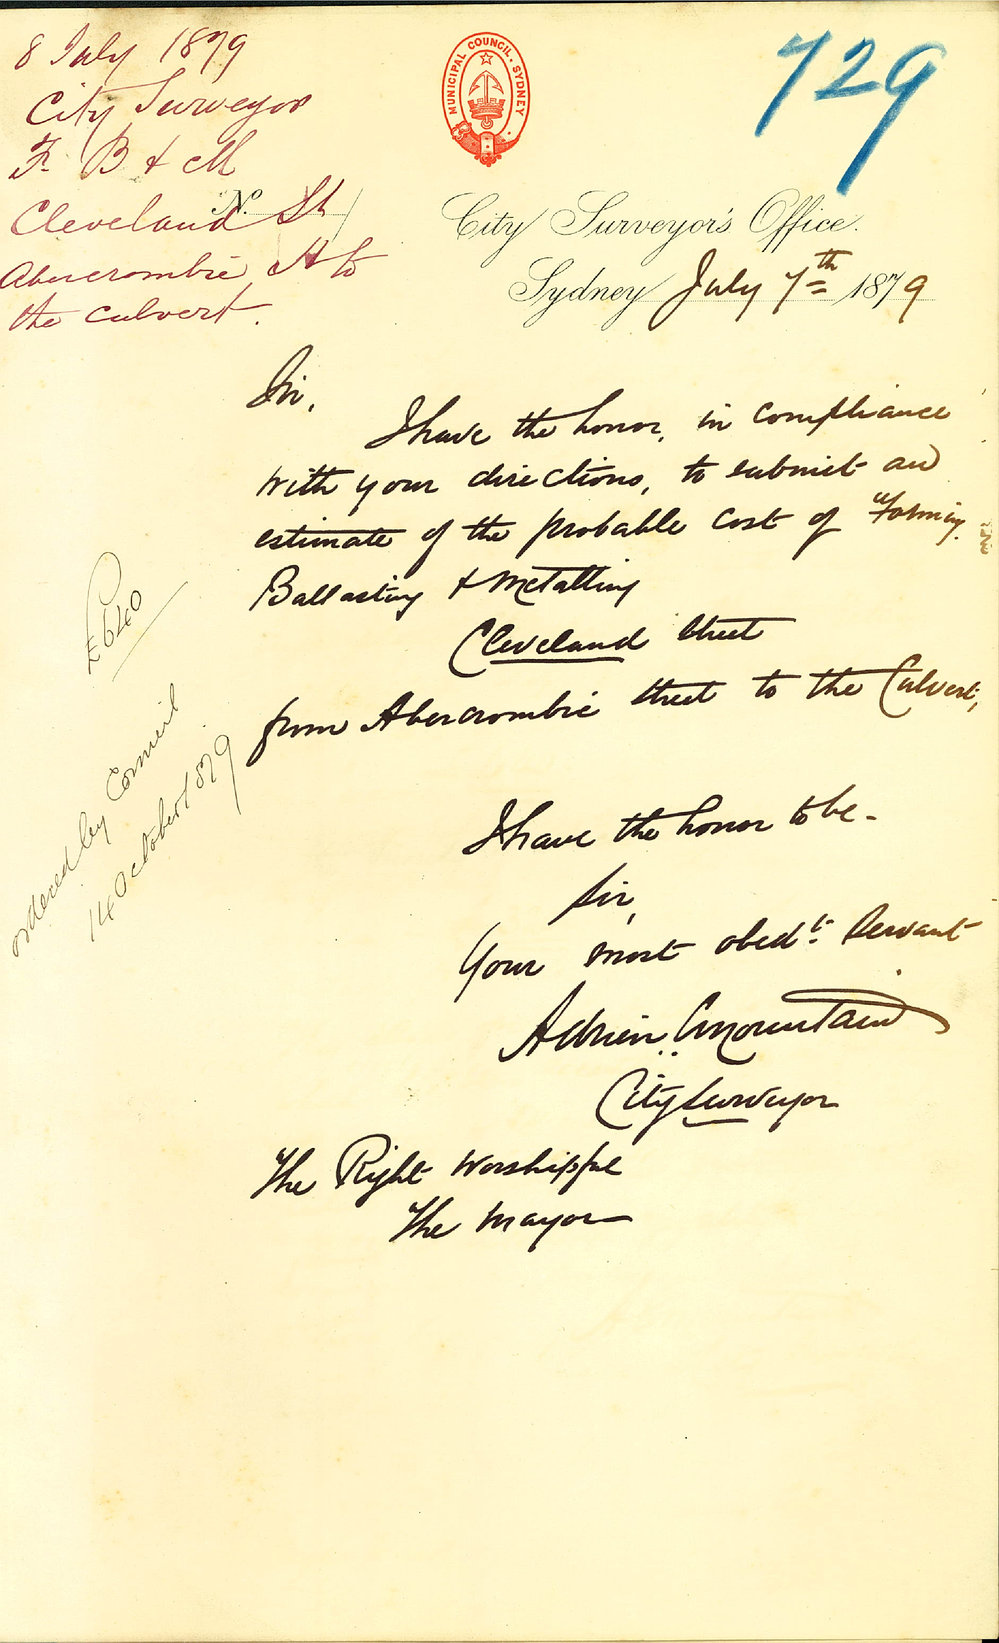 8 July 1879
City Surveyor
F. B & M
No.
Cleveland St
Abercrombie St to
the culvert.
MUNICIPAL COUNCIL. SYDNEY
729
City Surveyor's Office.
Sydney July 7th 1879
Sir,
I have the honor, in compliance
with your directions, to submit an
estimate of the probable cost of "Forming,
Ballasting & Metalling
Cleveland Street
from Abercrombie Street to the Culvert,
£640
ordered by Council
14 October 1879
I have the honor to be-
Sir,
Your most obedt. Servant
Adrien C Mountain
City Surveyor
The Right Worshipful
The Mayor